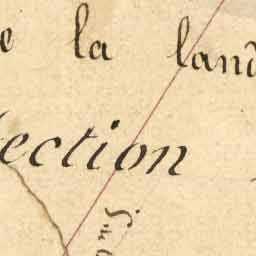 e la land
ection